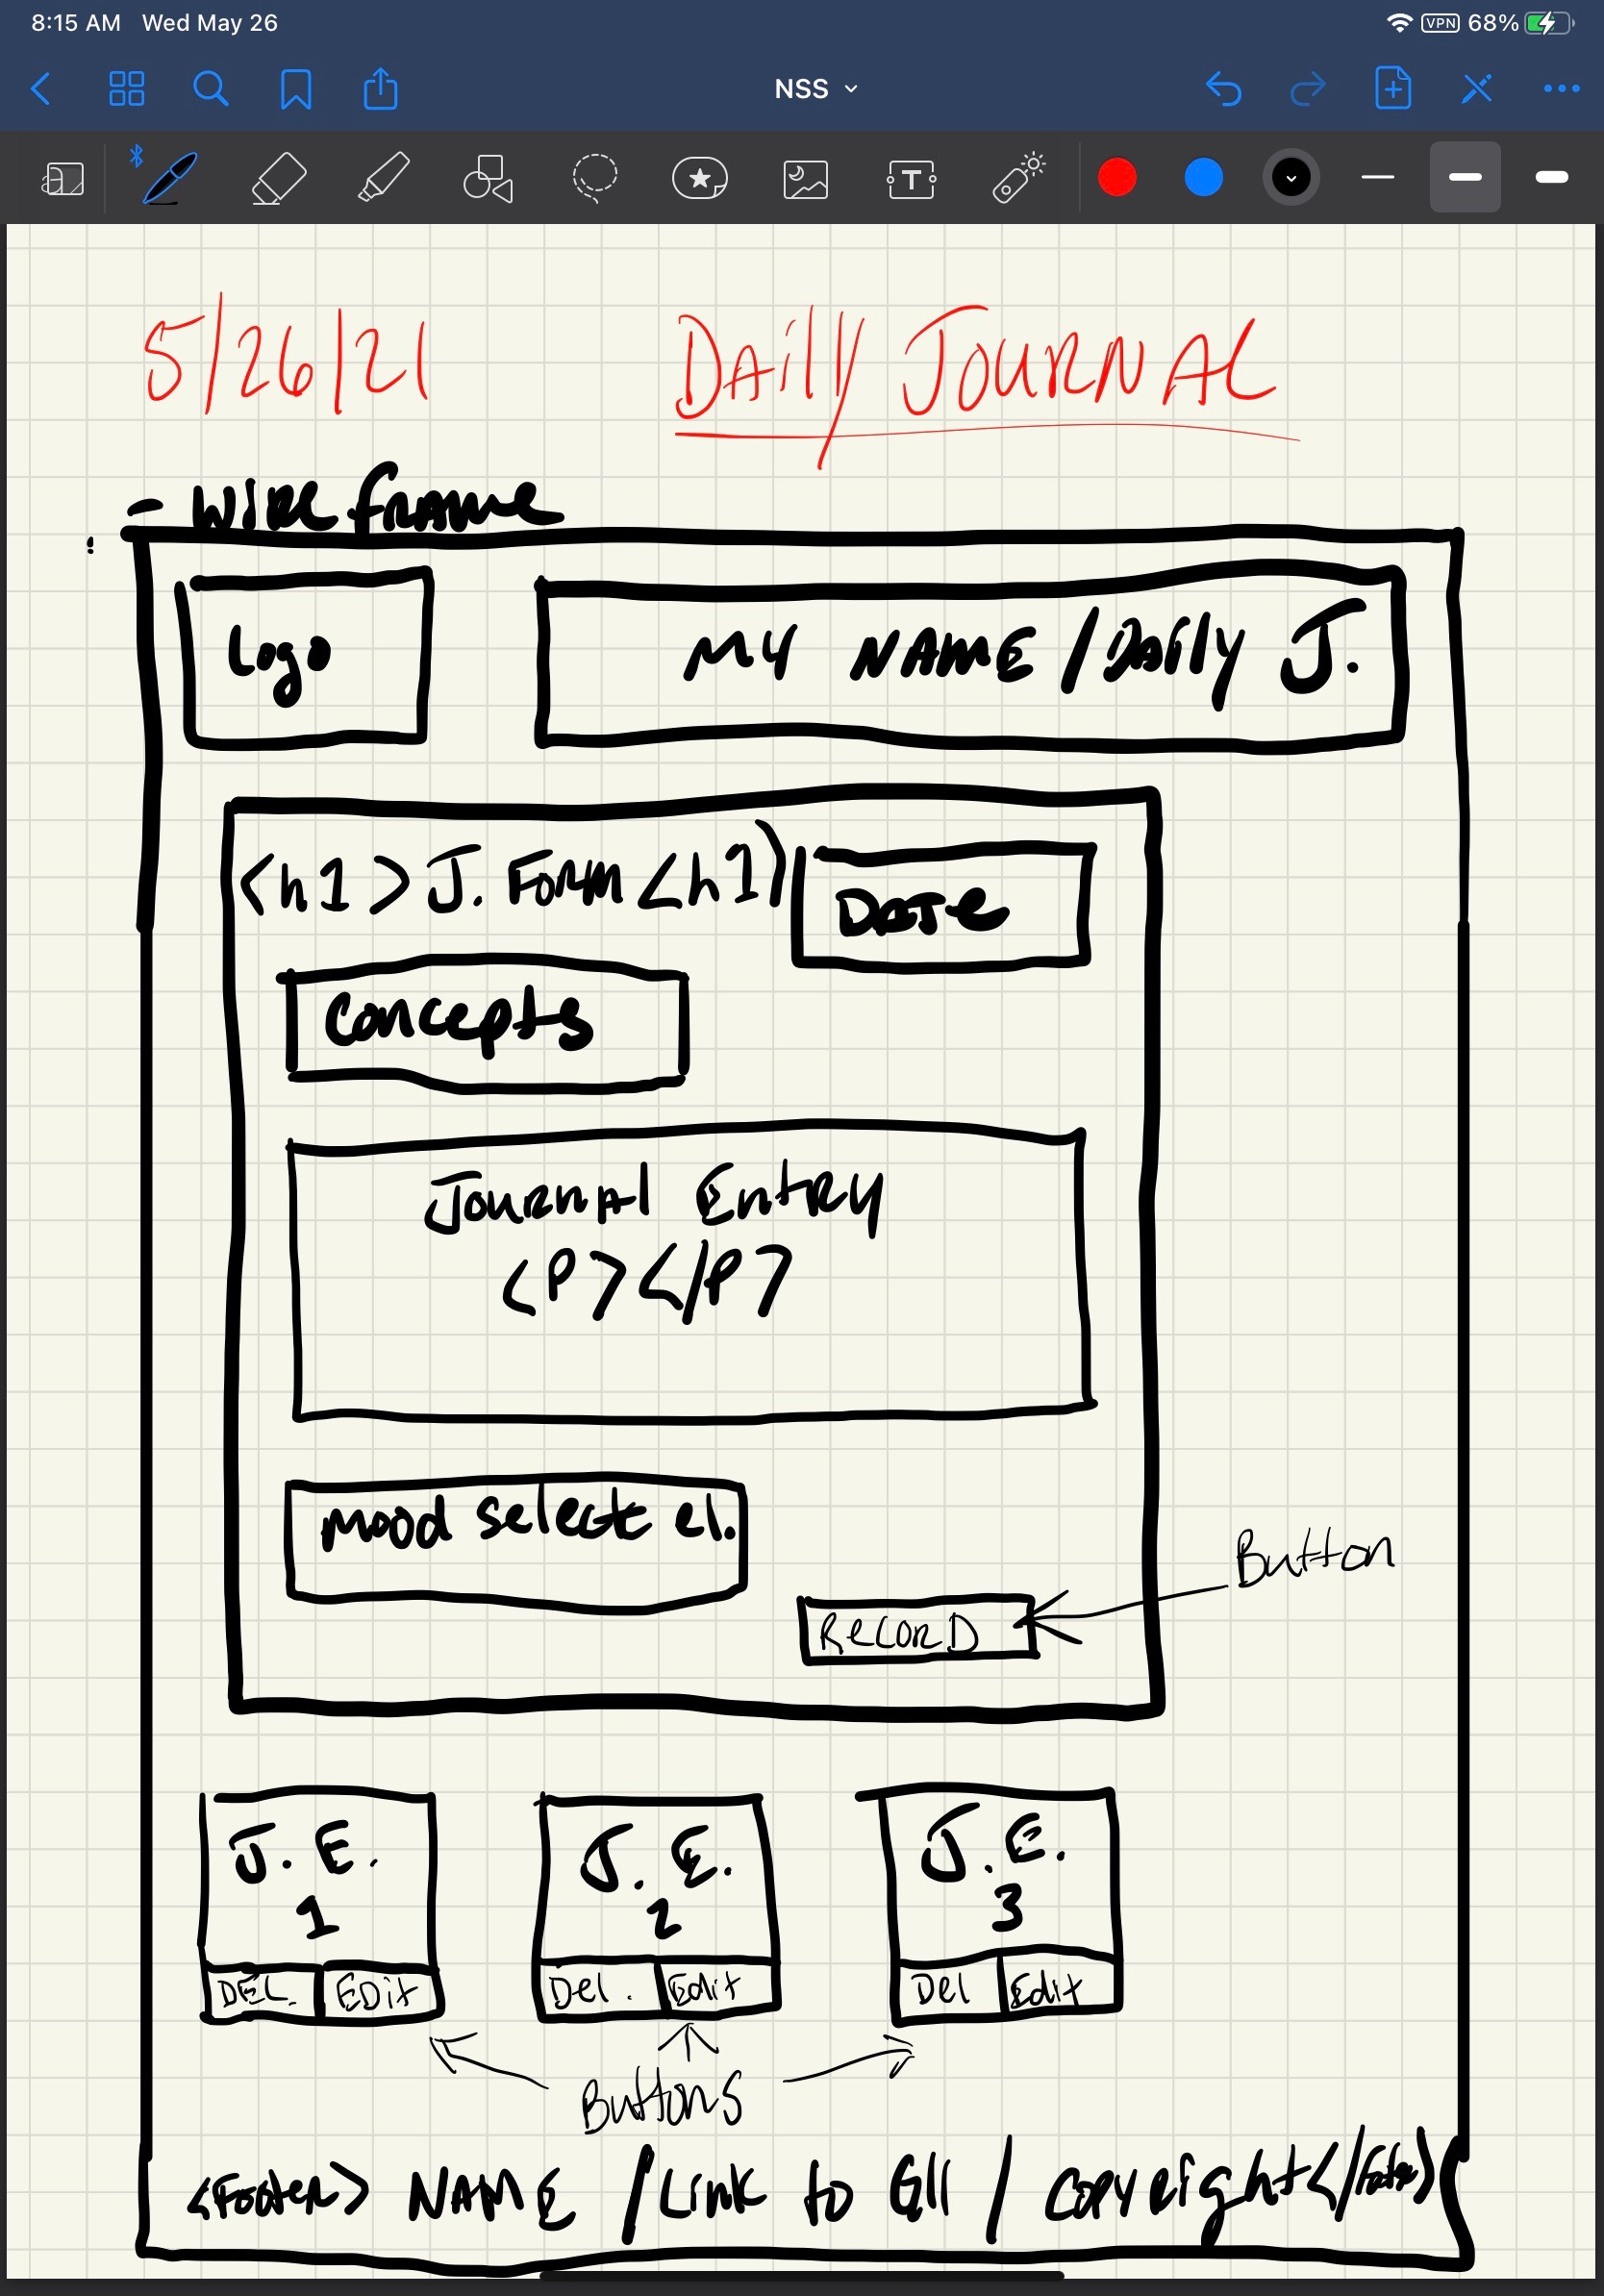 8:15 AM Wed May 26
VPN 68%
NSS
T
5/26/21 Daily Journal
- Wireframe
Logo
My Name / Daily J.
<h1> J. Form <h1>
Date
Concepts
Journal Entry
<P></P>
Mood select el.
Button
Record
J. E. 1
J. E. 2
J. E. 3
DEL. Edit
Del. Edit
Del Edit
Buttons
<Footer> Name / Link to GH / Copyright </Footer>